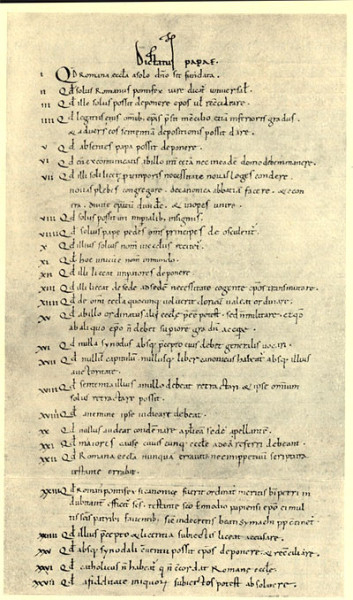 Dictatus papae.
I Qd Romana eccla a solo dno sit fundata.
II Qd solus Romanus pontifex iure dicat universal.
III Qd ille solus possit deponere epos vl reconciliare.
IIII Qd legatus eius omib; epis presit in concilio etia inferioris gradus.
& adversus eos sententia depositionis possit dare.
V Qd absentes papa possit deponere.
VI Qd cu excommunicatis ab illo int cetera nec in eade domo debem manere.
VII Qd illi soli licet p temporis necessitate novas leges condere
novas plebes congregare. de canonica abbatia facere. & e contra
divite episcopatu divide. & inopes unire.
VIII Qd solus possit uti imperialib; insigniis.
VIIII Qd solius pape pedes oms principes deosculent.
X Qd illius solius nom in ecclis recitet.
XI Qd hoc unicu e nom in mundo.
XII Qd illi liceat impatores deponere.
XIII Qd illi liceat de sede ad sede necessitate cogente epos transmutare.
XIIII Qd de omi eccla quocunq; voluerit clericu valeat ordinare.
XV Qd ab illo ordinatus alii eccle pee potest. sed n militare. et qd
ab aliquo epo n debet supiore gradu accipe.
XVI Qd nulla synodus absq; pcepto eius debet generalis vocari.
XVII Qd nullu capitulu nullusq; liber canonicus habeat absq; illius
auctoritate.
XVIII Qd sententia illius a nullo debeat retractari & ipse omium
solus retractare possit.
XVIIII Qd a nemine ipse iudicare debeat.
XX Qd nullus audeat condemnare aplica sede apellante.
XXI Qd maiores cause cuiuscunq; eccle ad ea referri debeant.
XXII Qd Romana eccla nunqua erravit nec inppetuu scriptura
testante errabit.
XXIII Qd Roman pontifex si canonice fuerit ordinat meritis b petri in
dubitant efficit scs. testante sco Ennodio papiensi epo ei mul
tis scis patrib; faventib; sic in decretis beati symachi pp continet.
XXIIII Qd illius pcepto & licentia subiectis liceat accusare.
XXV Qd absq; synodali conventu possit epos deponere & reconciliare.
XXVI Qd catholicus n habeat q n concordat Romane eccle.
XXVII Qd a fidelitate iniquoru subiectos potest absolvere.